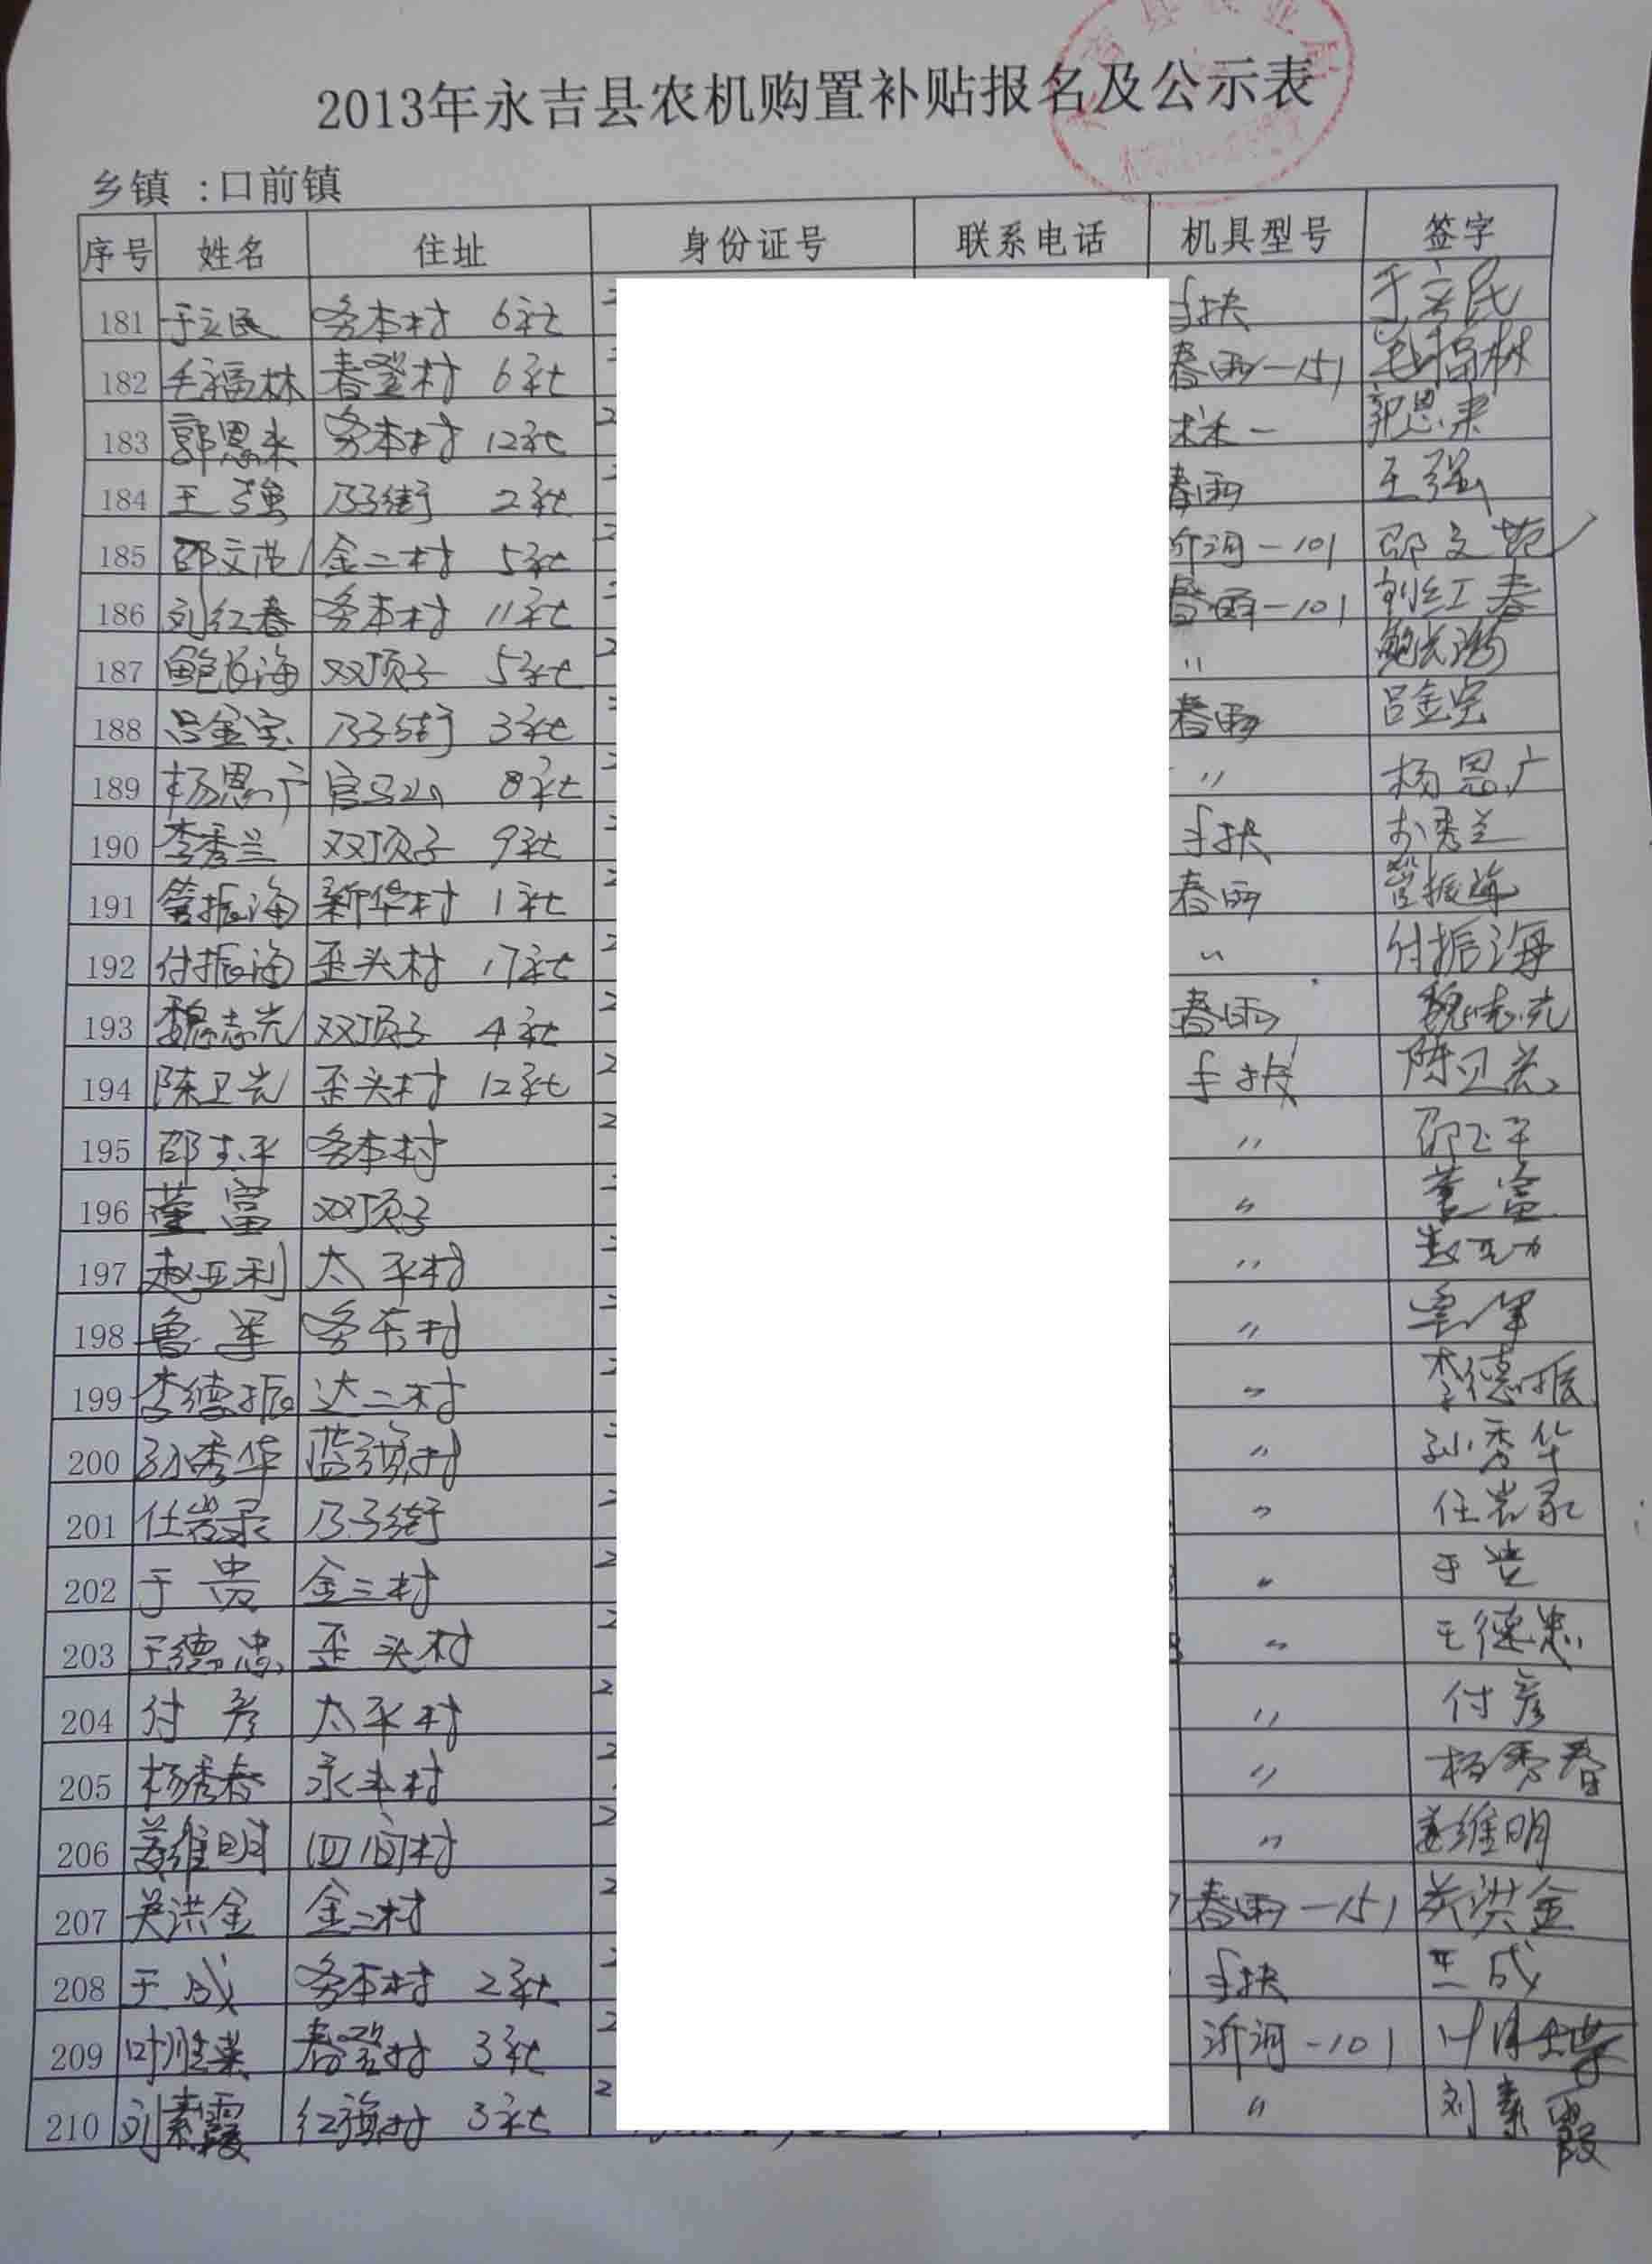 2013年永吉县农机购置补贴报名及公示表
乡镇 :口前镇
序号 姓名 住址 身份证号 联系电话 机具型号 签字
181 于立民 务本村 6社 手扶 于立民
182 毛福林 春登村 6社 春雨-151 毛福林
183 郭恩来 务本村 12社 郭恩来
184 王强 乃子街 2社 春雨 王强
185 邵文范 金二村 5社 沂河-101 邵文范
186 刘红春 务本村 11社 春雨-101 刘红春
187 鲍长海 双顶子 5社 〃 鲍长海
188 吕金宝 乃子街 3社 春雨 吕金宝
189 杨恩广 官马山 8社 〃 杨恩广
190 李秀兰 双顶子 9社 手扶 李秀兰
191 管振海 新华村 1社 春雨 管振海
192 付振海 歪头村 17社 〃 付振海
193 魏志光 双顶子 4社 春雨 魏志光
194 陈卫光 歪头村 12社 手扶 陈卫光
195 邵 平 务本村 〃
196 董富 双顶子 〃 董富
197 赵亚利 太平村 〃
198 鲁军 务本村 〃 鲁军
199 李德振 达二村 〃 李德振
200 孙秀华 蓝旗村 〃 孙秀华
201 任岩录 乃子街 〃 任岩录
202 于贵 金三村 〃 于贵
203 王德忠 歪头村 〃 王德忠
204 付彦 太平村 〃 付彦
205 杨秀春 永丰村 〃 杨秀春
206 姜维明 四间村 〃 姜维明
207 关洪金 金二村 春雨-151 关洪金
208 于成 务本村 2社 手扶 于成
209 叶胜荣 春登村 3社 沂河-101
210 刘素霞 红旗村 3社 〃 刘素霞